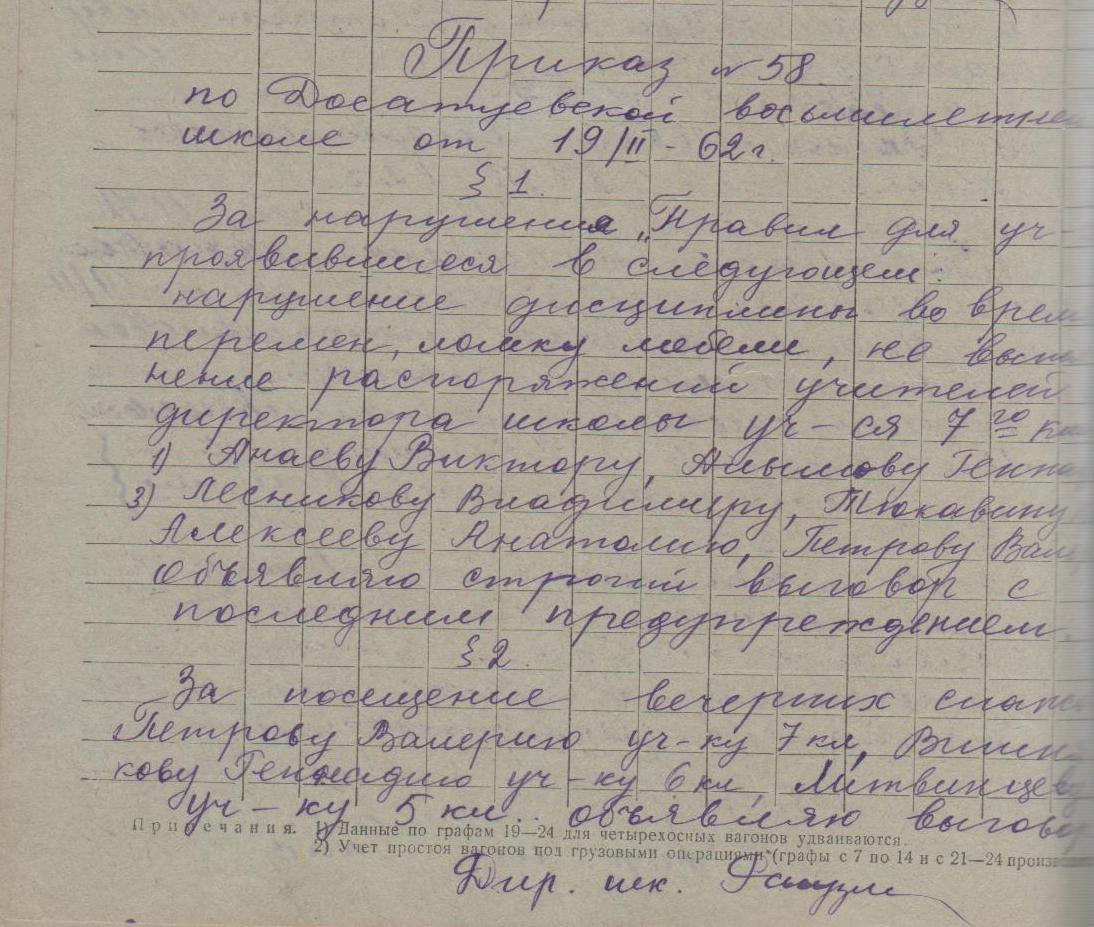 Приказ № 58
по Досатуевской восьмилетне
школе от 19/II - 62 г.
§ 1.
За нарушения „Правил для уч-
проявившиеся в следующем:
нарушение дисциплины во врем
перемен, ломку мебели, не выпо
нение распоряжений учителей
директора школы уч-ся 7го кл
1) Анаеву Виктору, Геннa
3) Лесникову Владимиру, Тюкавину
Алексееву Анатолию, Петрову Вале
объявляю строгий выговор с
последним предупреждением.
§ 2.
За посещение вечерних
Петрову Валерию уч-ку 7 кл, Вишня
кову Геннадию уч-ку 6 кл, Литвинцеву
уч-ку 5 кл.. объявляю выговор
Примечания. 1) Данные по графам 19—24 для четырехосных вагонов удваиваются.
2) Учет простоя вагонов под грузовыми операциями (графы с 7 по 14 и с 21—24 произв
Дир. шк.